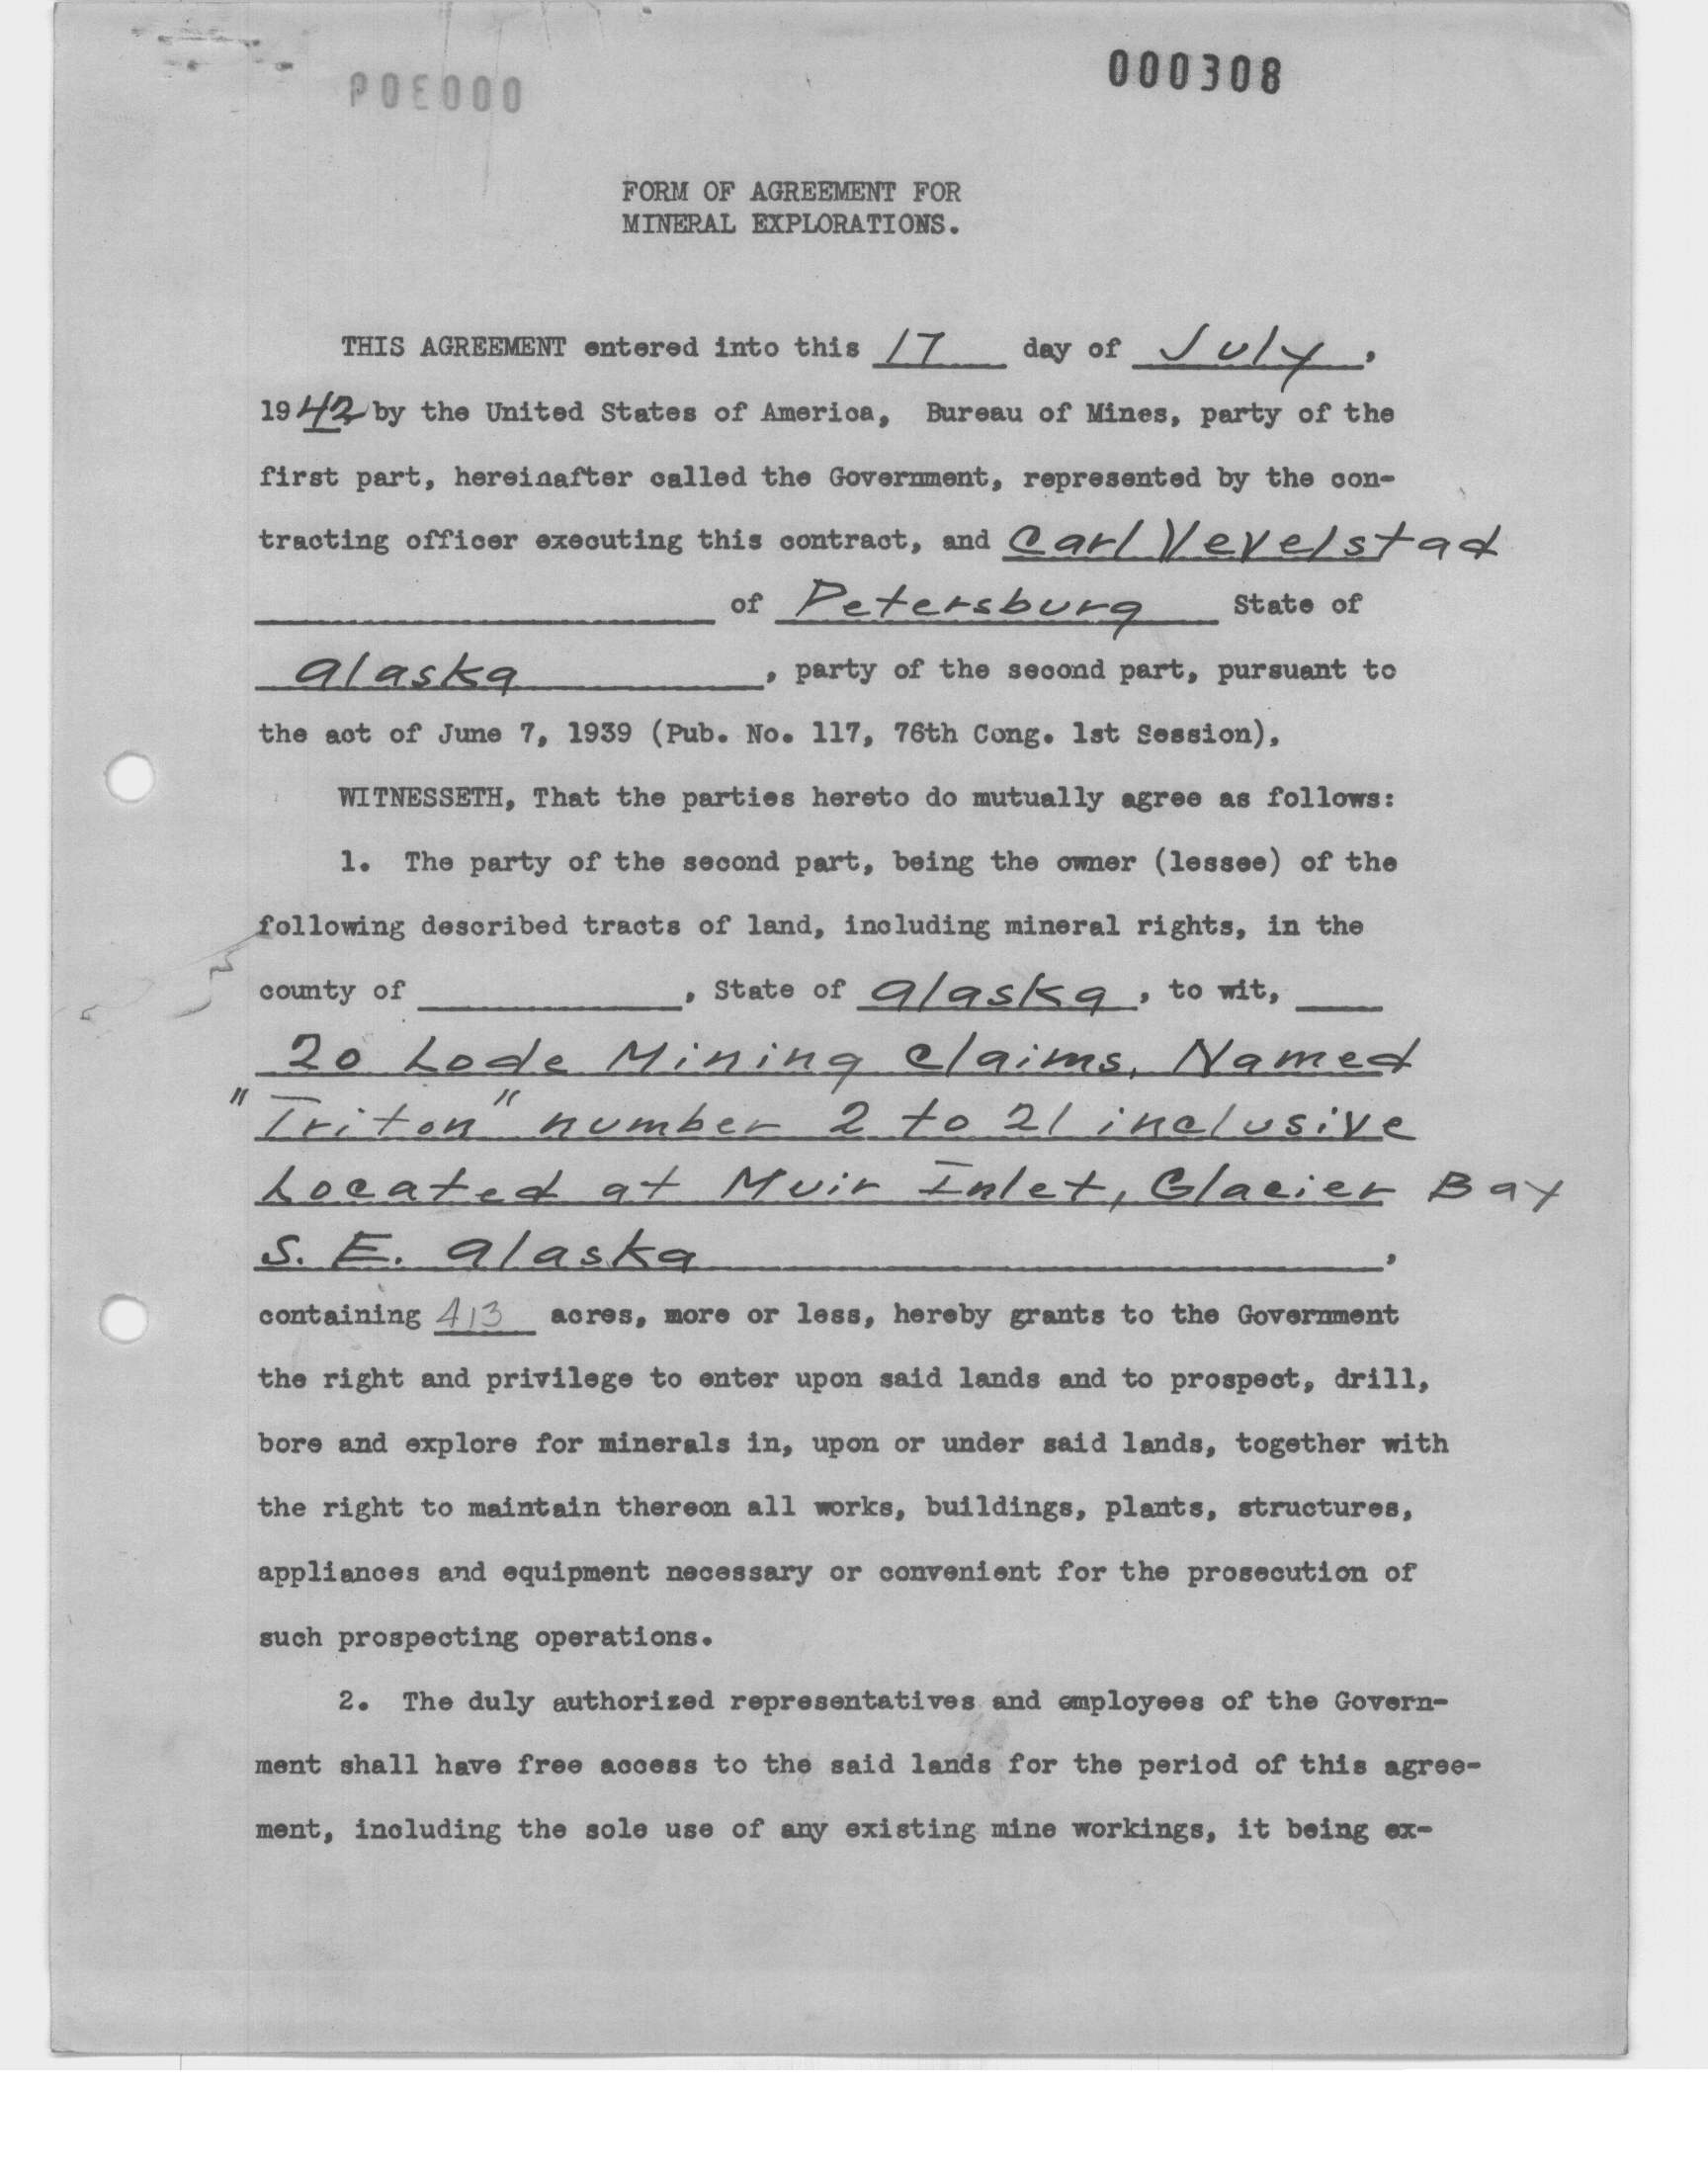 000308
P0E000
FORM OF AGREEMENT FOR
MINERAL EXPLORATIONS.
THIS AGREEMENT entered into this 17 day of July,
1942 by the United States of America, Bureau of Mines, party of the
first part, hereinafter called the Government, represented by the con-
tracting officer executing this contract, and Carl Vevelstad
of Petersburg State of
Alaska, party of the second part, pursuant to
the act of June 7, 1939 (Pub. No. 117, 76th Cong. 1st Session),
WITNESSETH, That the parties hereto do mutually agree as follows:
1. The party of the second part, being the owner (lessee) of the
following described tracts of land, including mineral rights, in the
county of ____, State of Alaska, to wit, ____
20 Lode Mining Claims, Named
"Triton" number 2 to 21 inclusive
Located at Muir Inlet, Glacier Bay
S. E. Alaska ,
containing 413 acres, more or less, hereby grants to the Government
the right and privilege to enter upon said lands and to prospect, drill,
bore and explore for minerals in, upon or under said lands, together with
the right to maintain thereon all works, buildings, plants, structures,
appliances and equipment necessary or convenient for the prosecution of
such prospecting operations.
2. The duly authorized representatives and employees of the Govern-
ment shall have free access to the said lands for the period of this agree-
ment, including the sole use of any existing mine workings, it being ex-